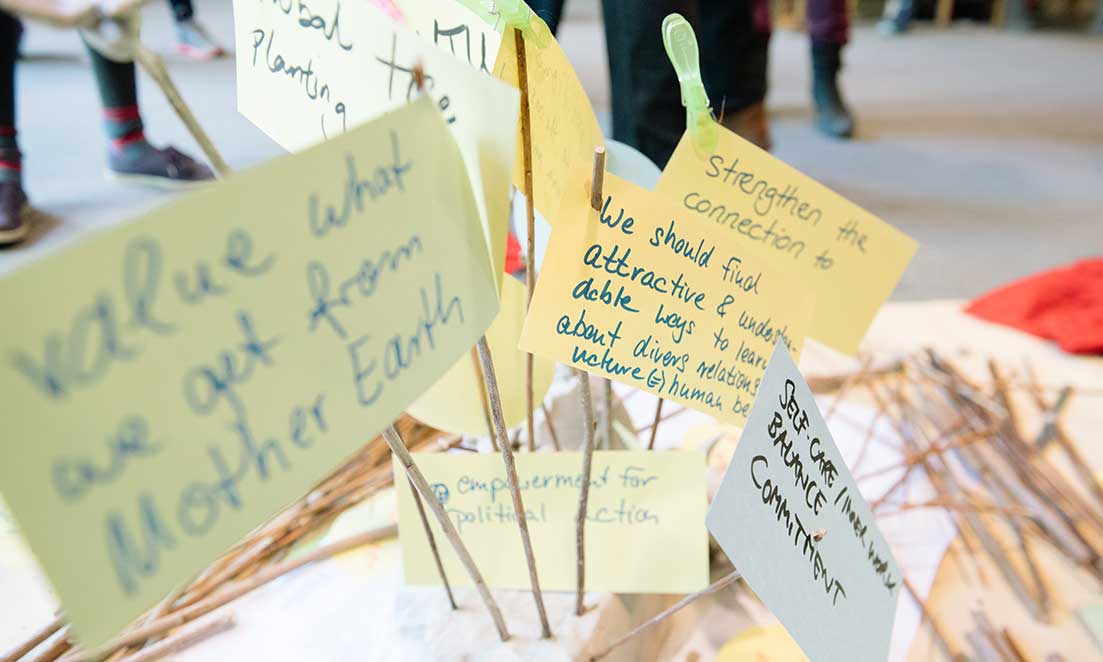 Planting
tree
value what
we get from
Mother Earth
Strengthen the
connection to
We should find
attractive &
dable ways to learn
about divers relations
human
empowerment for
political action
SELF-CARE / INNER WORK
BALANCE
COMMITMENT